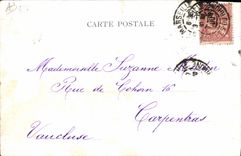 CARTE POSTALE
Mademoiselle Suzanne
Rue de Cohorn 16
Carpentras
Vaucluse